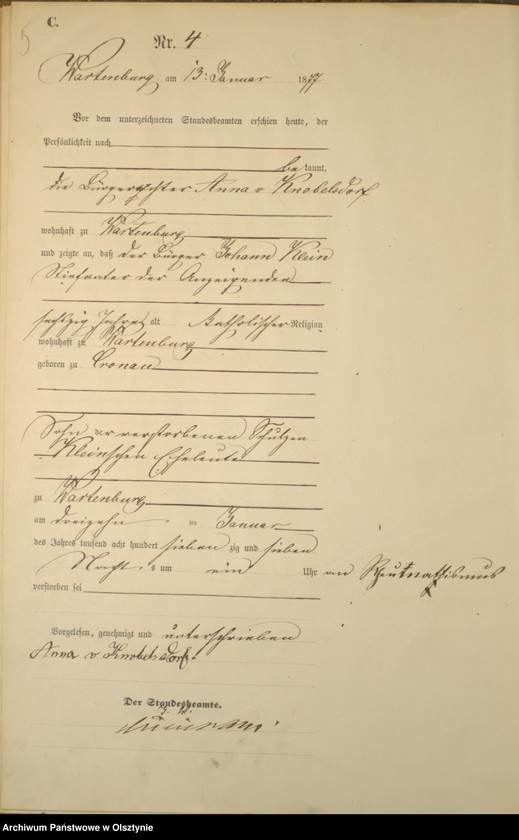 C.
5
Nr. 4
Wartenburg am 13: Januar 1877
Vor dem unterzeichneten Standesbeamten erschien heute, der
Persönlichkeit nach
be kannt,
die Bürgertochter Anna v Knobelsdorf
wohnhaft zu Wartenburg
und zeigte an, daß der Bürger Johann Klein
Stiefvater der Anzeigenden
sechszig Jahre alt katholischer Religion
wohnhaft zu Wartenburg
geboren zu Cronau
Sohn der verstorbenen Schützen
Klein'schen Eheleute
zu Wartenburg
am dreizehn ten Januar
des Jahres tausend acht hundert sieben zig und sieben
Nachts um ein Uhr an Rheumathismus
verstorben sei
Vorgelesen, genehmigt und unterschrieben
Anna v Knobelsdorf
Der Standesbeamte.
Archiwum Państwowe w Olsztynie